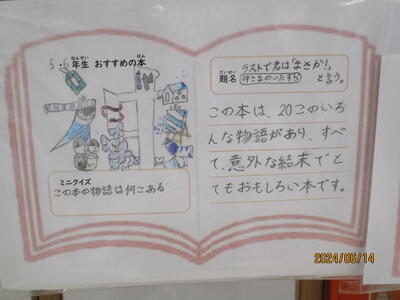 5.6年生 おすすめの本
ねんせい ほん
ミニクイズ
この本の物語は何こある
だいめい
題名
ラストで君は「まさか!」
神さまのいたずら
と言う。
この本は、20このいろ
んな物語があり、すべ
て、意外な結末でと
てもおもしろい本です。
2024/06/14